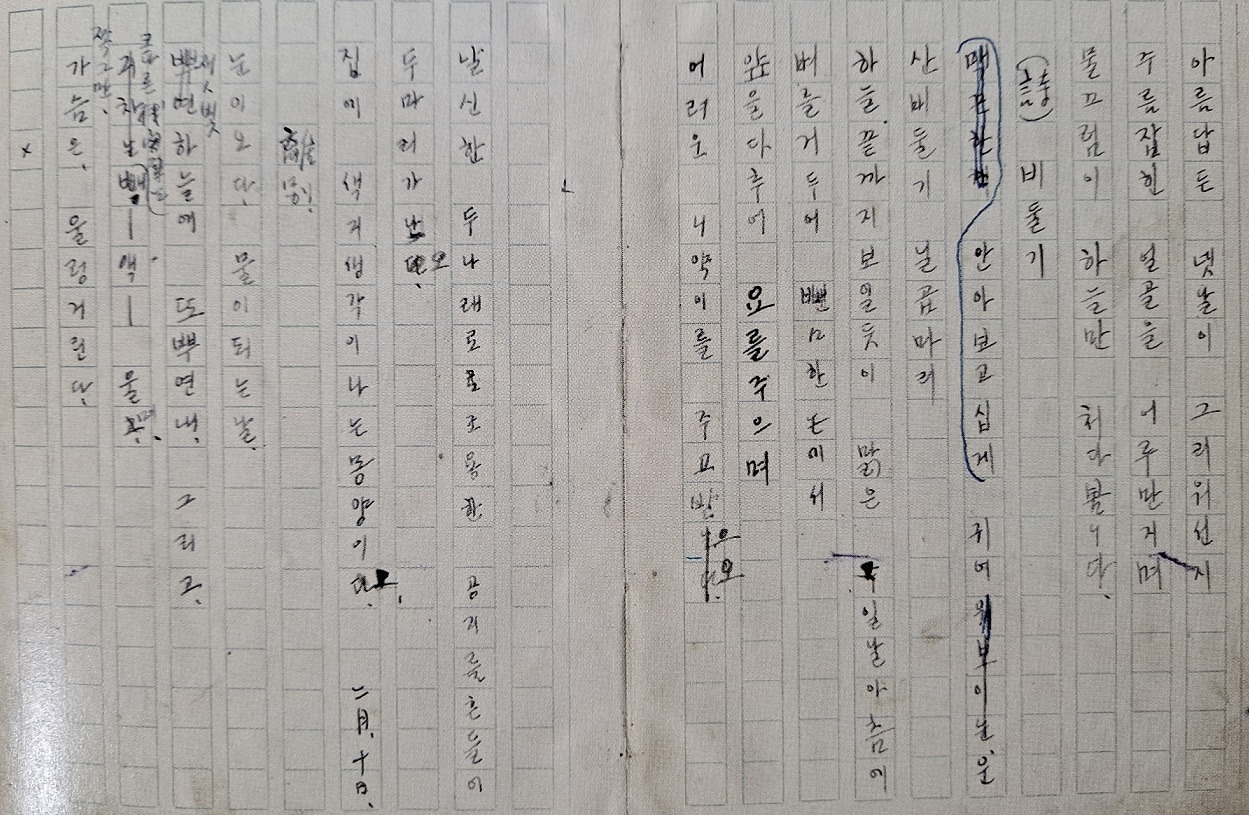 아름답든 넷날이 그리위선지
주름잡힌 얼골을 어루만지며
물끄럼이 하늘만 처다봅니다.
(詩) 비둘기
안아보고십게 귀여운
산비둘기 닐곱마리
하늘끝까지 보일듯이 맑은 주일날아츰에
벼를거두어 뺀ㅁ한논에서
앞을다추어 요를주으며
어려운 니약이를 주고받으오
날신한 두나래로 조용한 공긔를흔들어
두마리가 나오
집에 색기생각이나는몽양이오.
二月、十日、
눈이오다、 물이되는날、
잿빛
하늘에 또뿌연내、그리고、
크다른 機關車는 빼—액—울며、
쪽그만、
가슴은、 울렁거린다、
×